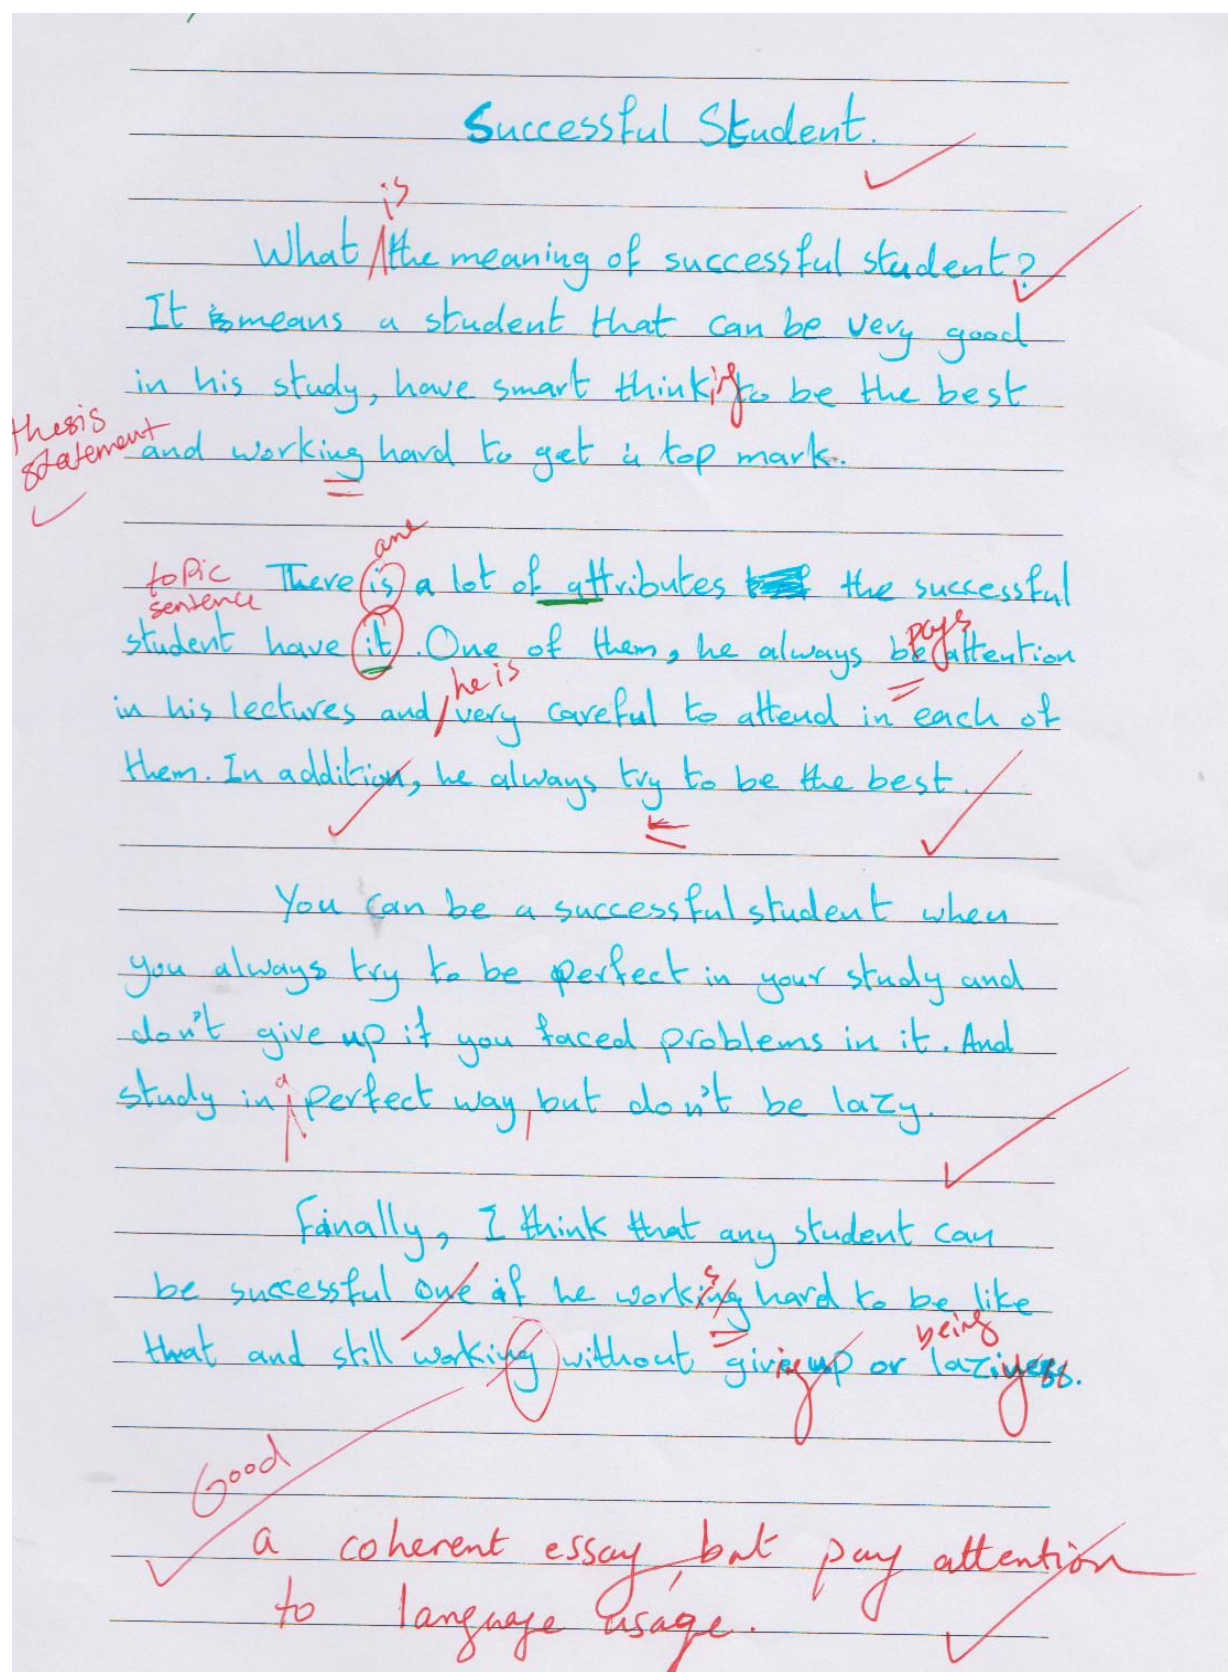 Successful Student.
is
What the meaning of successful student?
It means a student that can be very good
in his study, have smart thinking to be the best
thesis
statement
and working hard to get a top mark.
are
topic
sentence
There is a lot of attributes the successful
pays
student have it. One of them, he always be attention
he is
in his lectures and very careful to attend in each of
them. In addition, he always try to be the best.
You can be a successful student when
you always try to be perfect in your study and
don't give up if you faced problems in it. And
study in a perfect way, but don't be lazy.
Finally, I think that any student can
s
be successful one if he working hard to be like
being
that and still working without giving up or laziness.
Good
a coherent essay, but pay attention
to language usage.